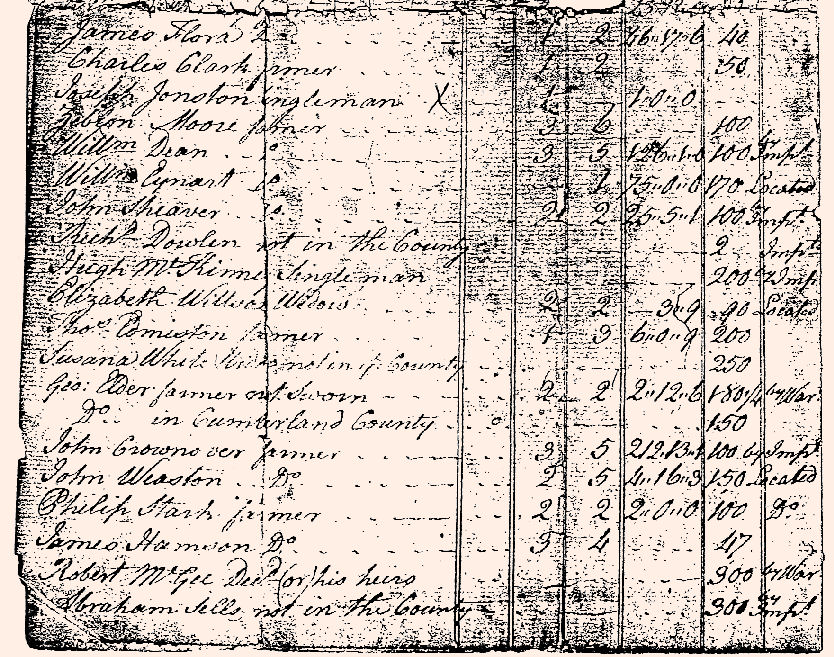 James Flora Do 1 2 46..17..6 40
Charles Clark farmer 1 2 50
Joseph Jonston Singleman X 1 1..0..0
Zeblon Moore farmer 3 6 100
Willm Dean Do 3 5 126..1..0 100 by Impt
Willm Do 1 75..0..0 170 Located
John Sheaver Do 2 2 25..5..1 100 by Impt
Richd Dowlen not in the County 2 Impt
Hugh McKinne Singleman 200 by Imp
Elizabeth Willson Widow 2 2 3..9 90 Located
Thos Edmiston farmer 1 3 6..0..9 200
Susana White Widow not in ye County 250
Geo: Elder farmer not Sworn 2 2 2..12..6 180 by War
Do in Cumberland County 150
John Crownover farmer 3 5 212.13.1 100 by Impt
John Weaston Do 2 5 4..16..3 150 Located
Philip Stark farmer 2 2 2..0..0 100 Do
James Hamson Do 3 4 47
Robert McGee Decd (or) his heirs 300 by War
Abraham Sells not in the County 300 by Impt